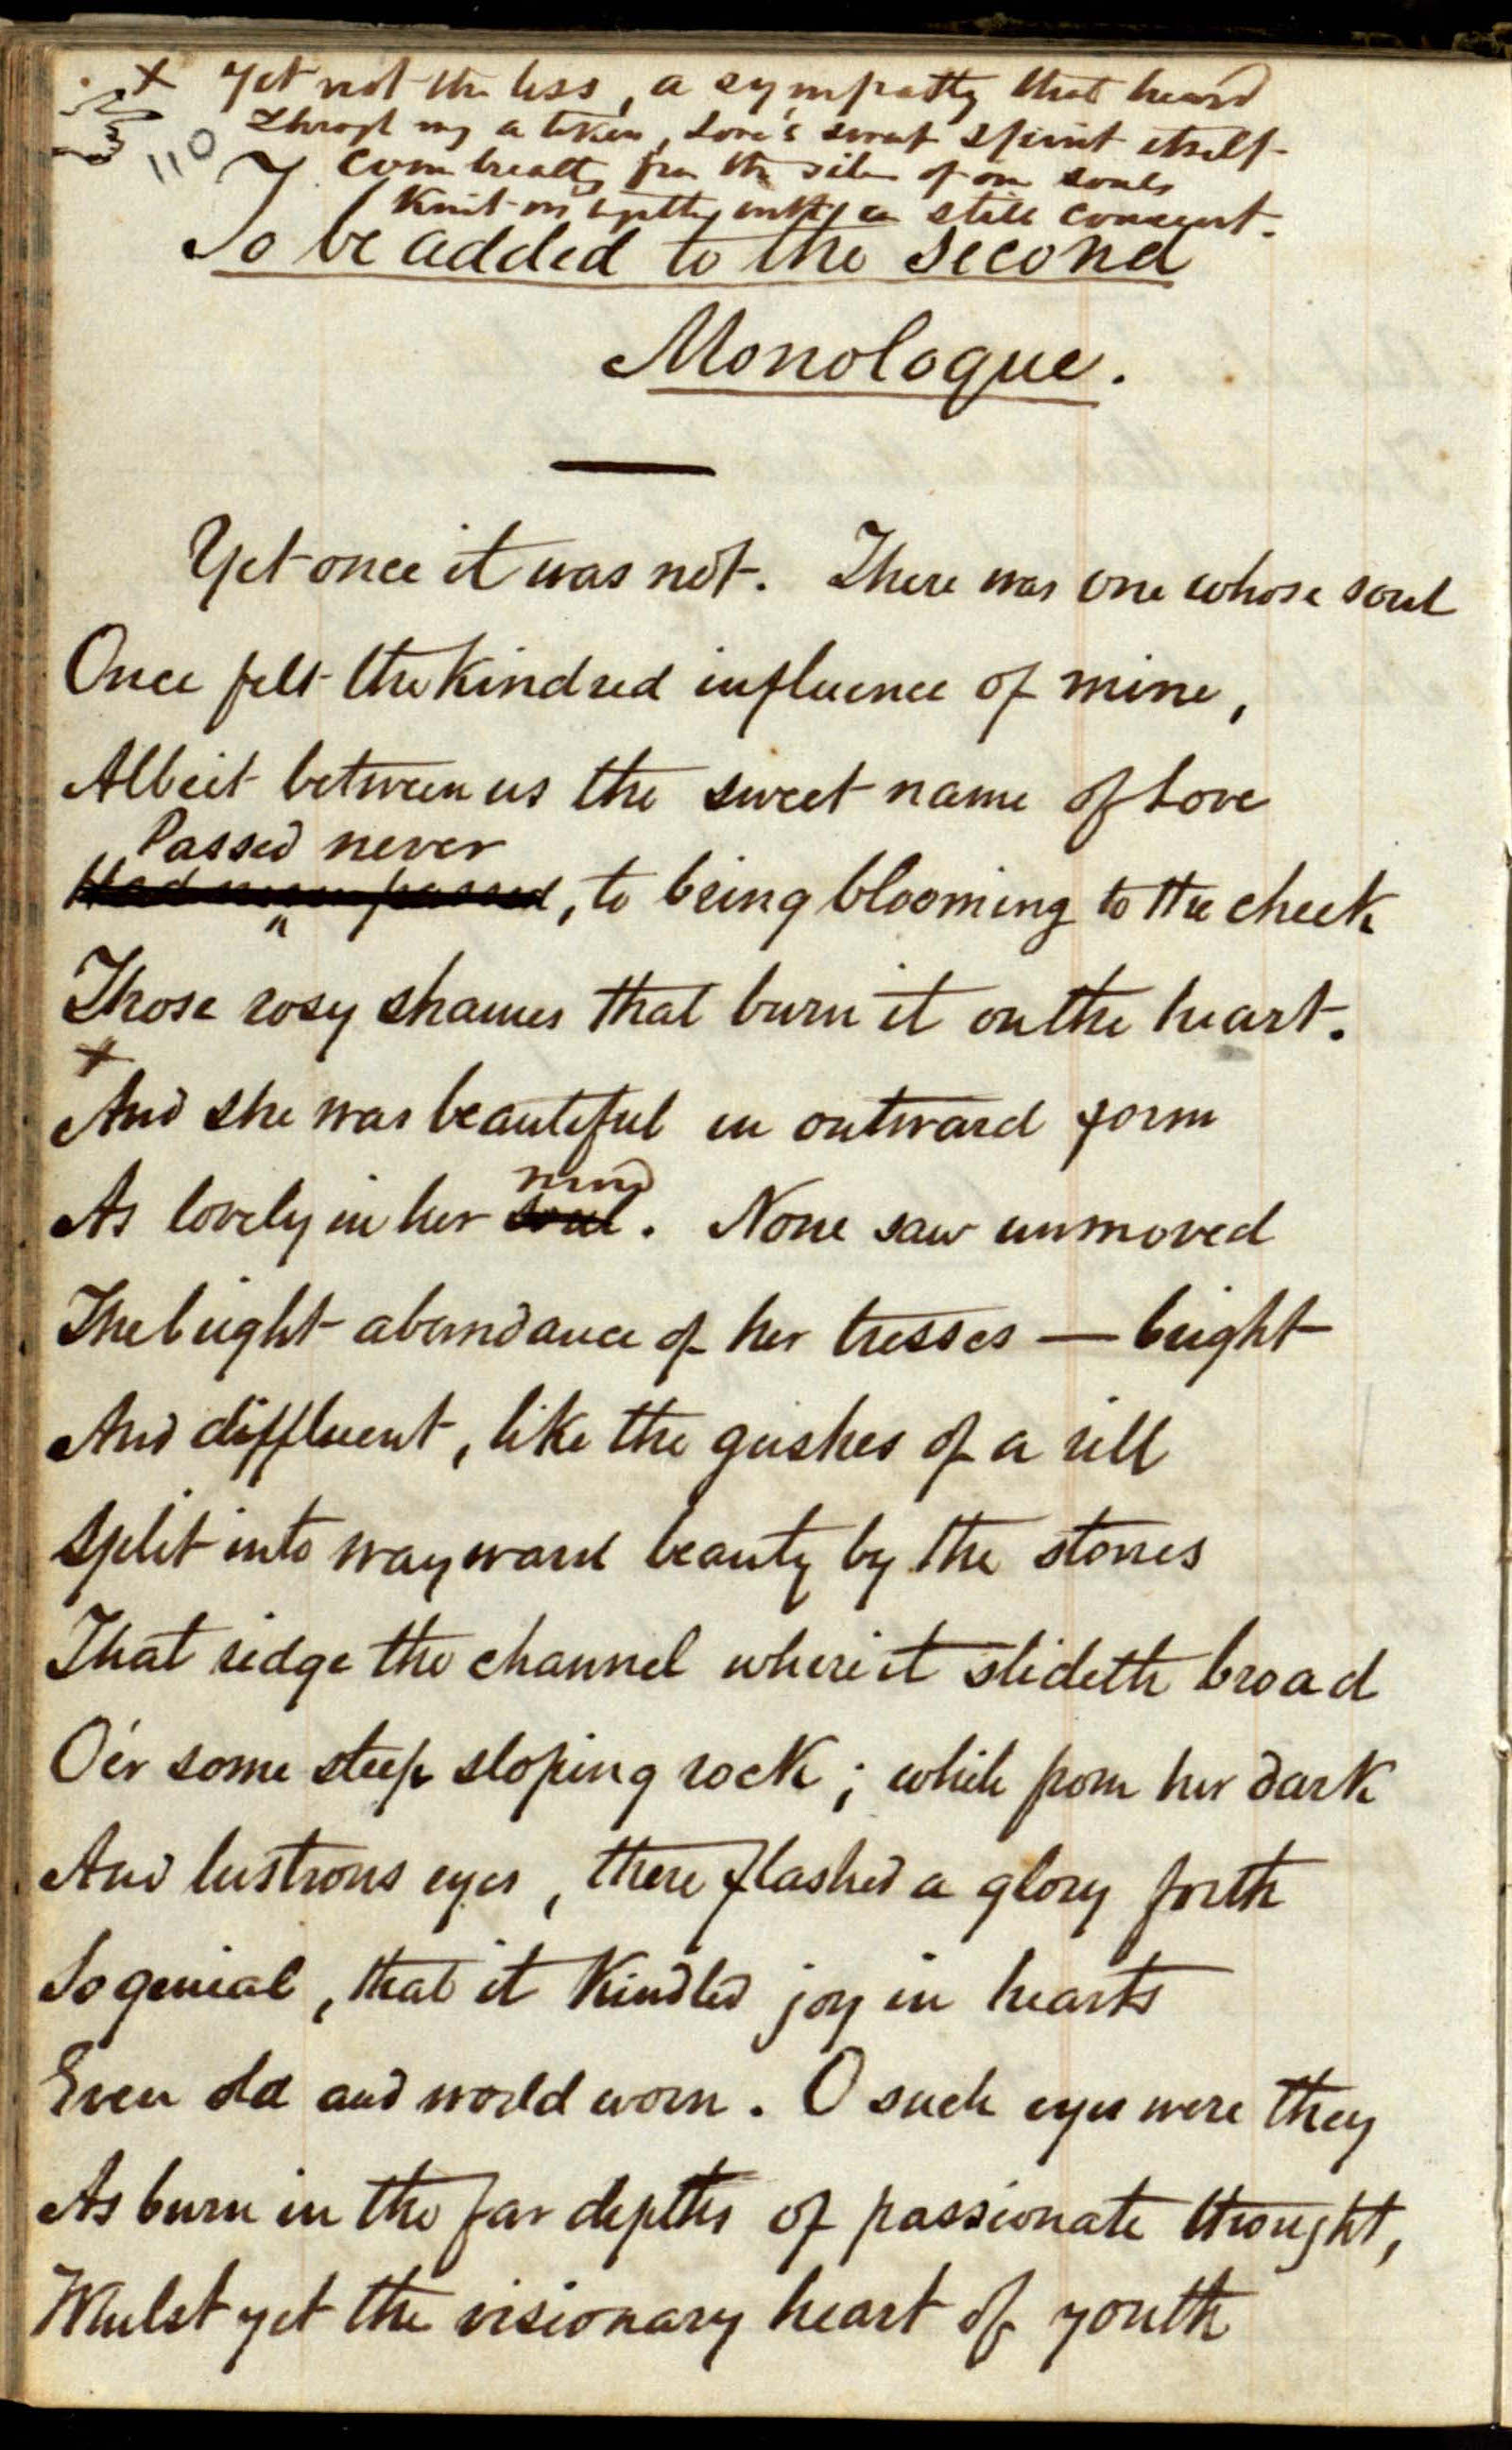 + Yet not the less, a sympathy that heard
Through many a token, Love's sweet spirit itself
Come breathing from the of our souls
Knit us together with a still consent.
110
To be added to the second
Monologue.
Yet once it was not. There was one whose soul
Once felt the kindred influence of mine,
Albeit between us the sweet name of Love
Passed never
, to bring blooming to the cheek
Those rosy shames that burn it on the heart.
+
And she was beautiful in outward form
mind
As lovely in her soul. None saw unmoved
The bright abundance of her tresses — bright
And diffluent, like the gushes of a rill
Split into wayward beauty by the stones
That ridge the channel where it slideth broad
O'er some steep sloping rock; while from her dark
And lustrous eyes, there flashed a glory forth
So genial, that it kindled joy in hearts
Even old and world worn. O such eyes were they
As burn in the far depths of passionate thought,
Whilst yet the visionary heart of youth